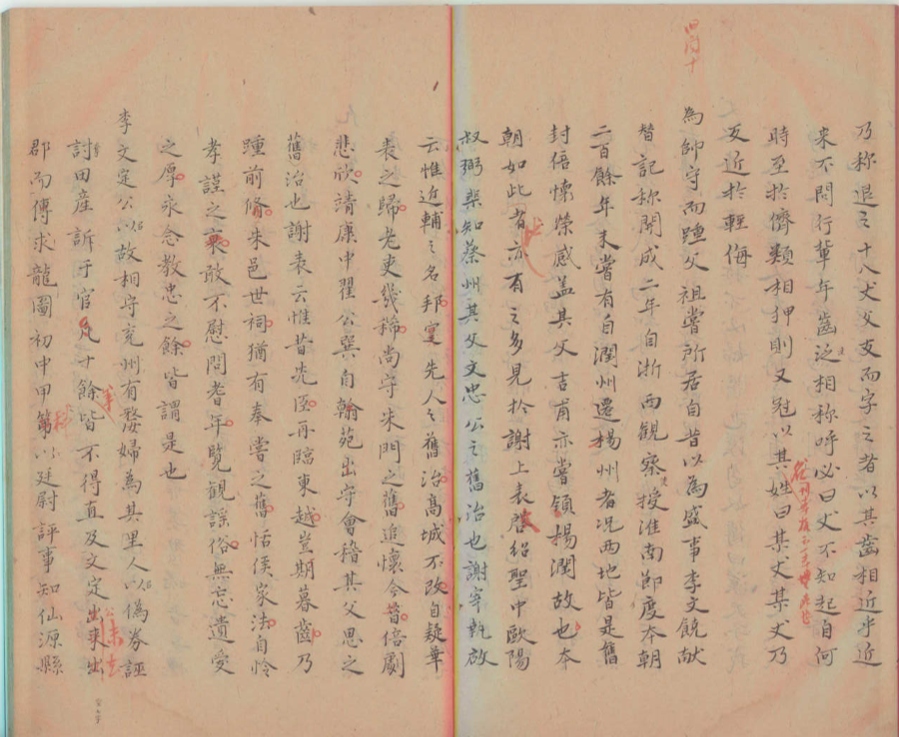 乃称退之十八丈父支而字之者以其齒相近乎近
来不問行輩年齒泛相称呼必曰丈不知起自何
時至於儕類相狎則又冠以其姓曰某丈某丈乃
反近於輕侮
為帥守而踵父祖嘗所居自昔以為盛事李文饒献
替記称開成二年自浙西觀察授淮南節度本朝
二百餘年未嘗有自潤州遷楊州者况兩地皆是舊
封倍懷榮感盖其父吉甫亦嘗領楊潤故也本
朝如此者亦有之多見於謝上表啓紹聖中歐陽
叔弼棐知蔡州其父文忠公之舊治也謝宰執啟
云惟近輔之名邦寔先人之舊治髙城不改自疑華
表之歸老吏幾稀尚守朱門之舊追懷今昔倍劇
悲欣靖康中翟公巽自翰苑出守會稽其父思之
舊治也謝表云惟昔先臣再臨東越豈期暮齒乃
踵前脩朱邑世祠猶有奉嘗之舊恬侯家法自怜
孝謹之衰敢不慰問耆年覧観謡俗無忘遺愛
之厚永念教忠之餘皆謂是也
李文定公以故相守兖州有嫠婦為其里人以偽券誣
討田産訴于官凡十餘皆不得直及文定出来出
郡而傅求龍圖初中甲第以廷尉評事知仙源縣